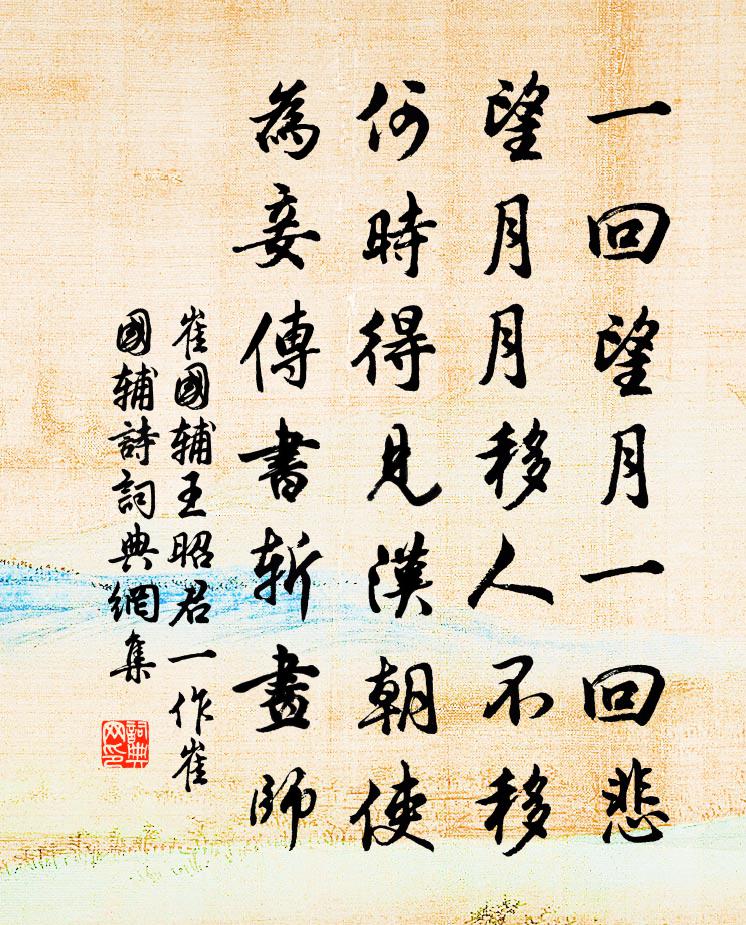 一回望月一回悲
望月月移人不移
何時得見漢朝使
為妾傳書斬畫師
崔國輔王昭君一作崔
國輔詩詞典網集
詞典网印